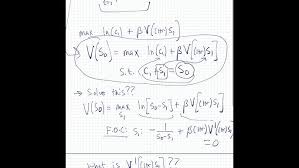 max ln(c₁) + βV[(1+r)s₁]
V(s₀) = max ln(c₁) + βV[(1+r)s₁]
s.t. c₁ + s₁ = s₀
→ Solve this??
V(s₀) = max ln[s₀-s₁] + βV[(1+r)s₁]
s₁
F.O.C: s₁: -1/(s₀-s₁) + β(1+r)V'[(1+r)s₁]
=0
What is V'[(1+r)s₁]??